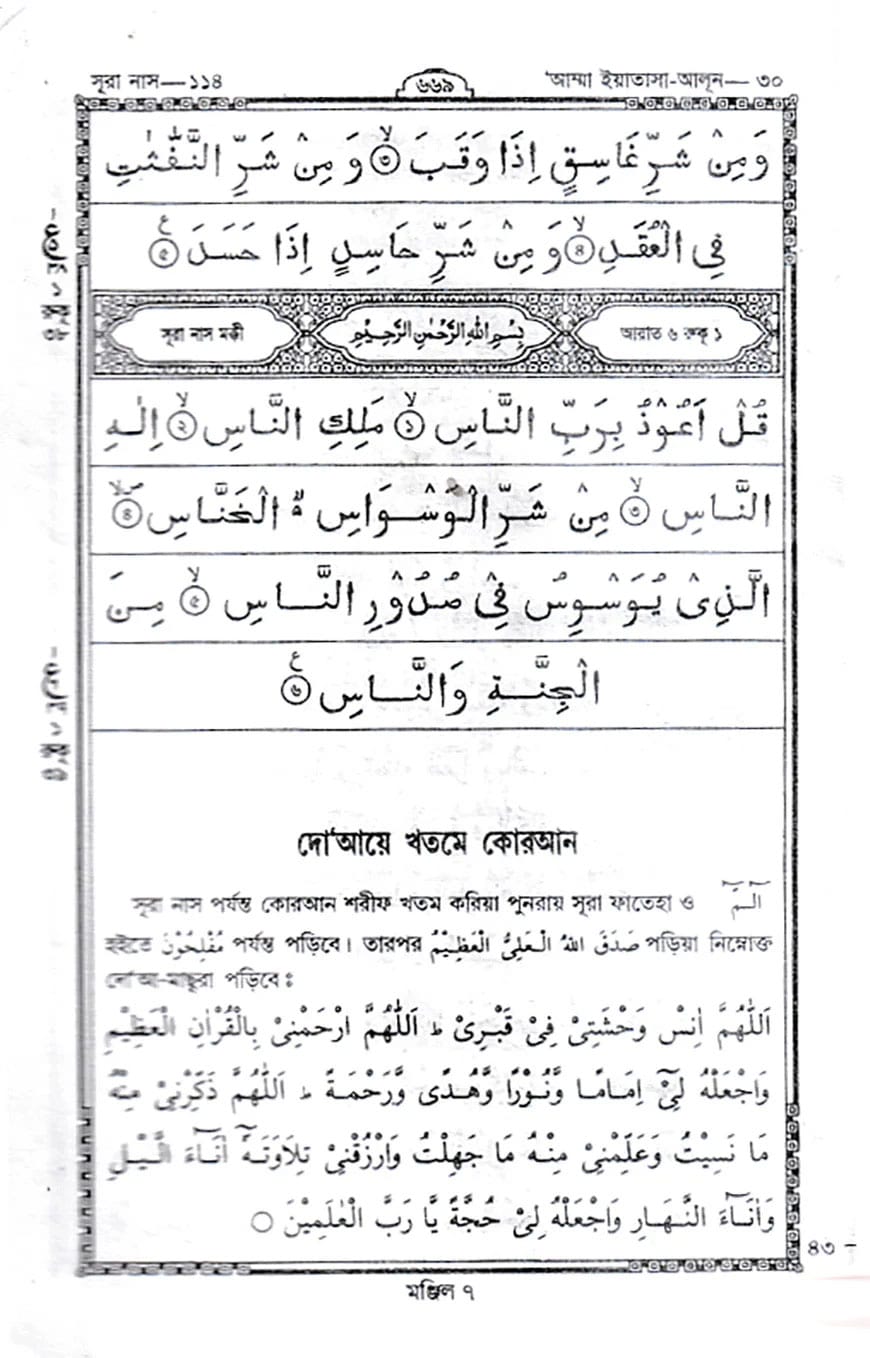 সূরা নাস—১১৪ ৬৬৯ 'আম্মা ইয়াতাসা-আলূন— ৩০
وَمِنْ شَرِّ غَاسِقٍ اِذَا وَقَبَ ۙ﴿৩﴾ وَ مِنْ شَرِّ النَّفّٰثٰتِ
فِي الْعُقَدِ ۙ﴿৪﴾ وَ مِنْ شَرِّ حَاسِدٍ اِذَا حَسَدَ ﴿৫﴾ ع
সূরা নাস মক্কী بِسْمِ اللّٰهِ الرَّحْمٰنِ الرَّحِيْمِ আয়াত ৬ রুকূ ১
قُلْ اَعُوْذُ بِرَبِّ النَّاسِ ۙ﴿১﴾ مَلِكِ النَّاسِ ۙ﴿২﴾ اِلٰهِ
النَّاسِ ۙ﴿৩﴾ مِنْ شَرِّ الْوَسْوَاسِ ەۙ الْخَنَّاسِ ﴿৪﴾
الَّذِىْ يُوَسْوِسُ فِىْ صُدُوْرِ النَّاسِ ۙ﴿৫﴾ مِنَ
الْجِنَّةِ وَالنَّاسِ ﴿৬﴾ ع
দো'আয়ে খতমে কোরআন
সূরা নাস পর্যন্ত কোরআন শরীফ খতম করিয়া পুনরায় সূরা ফাতেহা ও الٓـمّٓ
হইতে مُفْلِحُوْنَ পর্যন্ত পড়িবে। তারপর صَدَقَ اللهُ الْعَلِىُّ الْعَظِيْمُ পড়িয়া নিম্নোক্ত
দো'আ-মাছূরা পড়িবে ঃ
اَللّٰهُمَّ اٰنِسْ وَحْشَتِىْ فِىْ قَبْرِىْ ط اَللّٰهُمَّ ارْحَمْنِىْ بِالْقُرْاٰنِ الْعَظِيْمِ
وَاجْعَلْهُ لِىْٓ اِمَامًا وَّنُوْرًا وَّهُدًى وَّرَحْمَةً ط اَللّٰهُمَّ ذَكِّرْنِىْ مِنْهُ
مَا نَسِيْتُ وَعَلِّمْنِىْ مِنْهُ مَا جَهِلْتُ وَارْزُقْنِىْ تِلَاوَتَهٗٓ اٰنَآءَ الَّيْلِ
وَاٰنَآءَ النَّهَارِ وَاجْعَلْهُ لِىْ حُجَّةً يَّا رَبَّ الْعٰلَمِيْنَ ○
৪৩ –
মঞ্জিল ৭